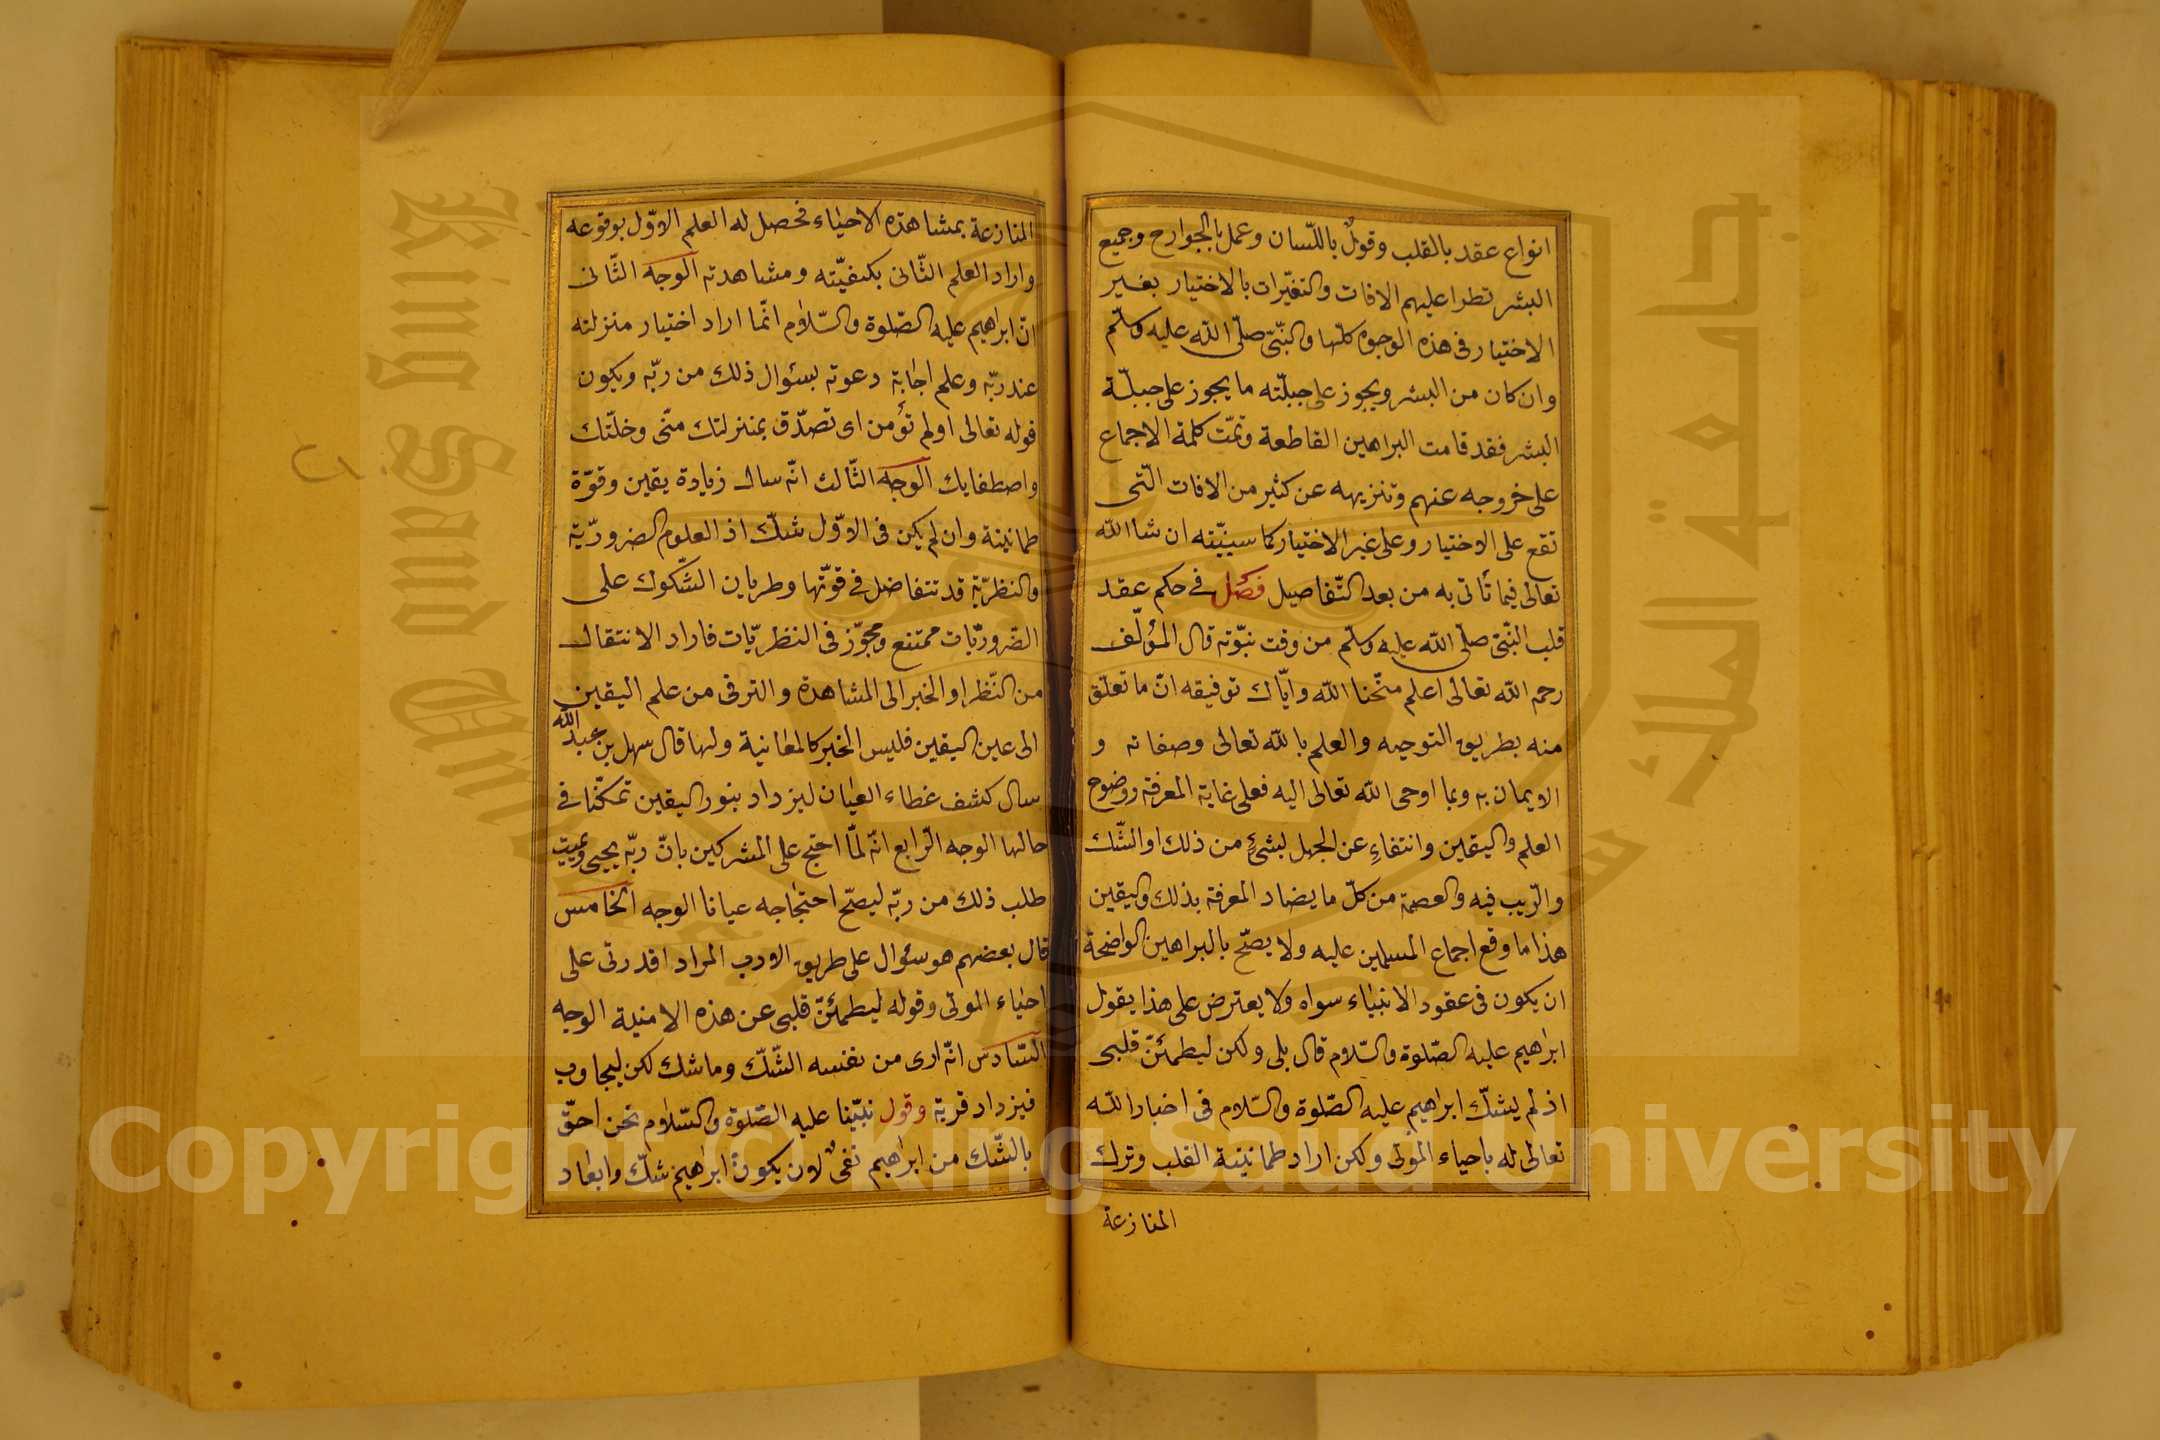 انواع عقد بالقلب وقول باللّسان وعمل بالجوارح وجميع
البشر تطرا عليهم الافات والتغيّرات بالاختيار بغير
الاختيار فى هذه الوجوه كلّها والنّبىّ صلّى الله عليه وسلّم
وان كان من البشر ويجوز على جبلّته ما يجوز على جبلّة
البشر فقد قامت البراهين القاطعة وتمّت كلمة الاجماع
على خروجه عنهم وتنزيهه عن كثير من الافات الّتى
تقع على الاختيار وعلى غير الاختيار كما سنبيّنه ان شا الله
تعالى فيما تأتى به من بعد التّفاصيل فصل فى حكم عقد
قلب النّبىّ صلّى الله عليه وسلّم من وقت نبوّته قال المؤلّف
رحمه الله تعالى اعلم منحنا الله وايّاك توفيقه انّ ما تعلّق
منه بطريق التوحيه والعلم بالله تعالى وصفاته و
الايمان به وبما اوحى الله تعالى اليه فعلى غاية المعرفة ووضوح
العلم واليقين وانتفاء عن الجهل بشئ من ذلك او الشّك
والرّيب فيه والعصمة من كلّ ما يضاد المعرفة بذلك واليقين
هذا ما وقع اجماع المسلمين عليه ولا يصحّ بالبراهين الواضحة
ان يكون فى عقود الانبياء سواه ولا يعترض على هذا بقول
ابراهيم عليه الصّلوة والسّلام قال بلى ولكن ليطمئنّ قلبى
اذ لم يشكّ ابراهيم عليه الصّلوة والسّلام فى اخبار الله
تعالى له باحياء الموتى ولكن اراد طمانينة القلب وترك
المنازعة
المنازعة بمشاهدة الاحياء فحصل له العلم الاوّل بوقوعه
واراد العلم الثّانى بكيفيّته ومشاهدته الوجه الثّانى
انّ ابراهيم عليه الصّلوة والسّلام انّما اراد اختيار منزلته
عند ربّه وعلم اجابة دعوته بسئوال ذلك من ربّه ويكون
قوله تعالى اولم تؤمن اى تصدّق بمنزلتك منّى وخلّتك
واصطفايك الوجه الثّالث انّه سال زيادة يقين وقوّة
طمانينة وان لم يكن فى الاوّل شكّ اذ العلوم الضروريّة
والنظريّة قد تتفاضل فى قوّتها وطريان الشّكوك على
الضّروريّات ممتنع ومجوّز فى النظريّات فاراد الانتقال
من النّظر او الخبر الى المشاهدة والترقى من علم اليقين
الى عين اليقين فليس الخبر كالمعاينة ولهذا قال سهل بن عبد الله
سال كشف غطاء العيان ليزداد بنور اليقين تمكّنا فى
حالها الوجه الرّابع انّه لمّا احتج على المشركين بانّ ربّه يحيى ويميت
طلب ذلك من ربّه ليصحّ احتجاجه عيانا الوجه الخامس
قال بعضهم هو سئوال على طريق الادب المراد اقدرنى على
احياء الموتى وقوله ليطمئنّ قلبى عن هذه الامنية الوجه
السّادس انّه ارى من نفسه الشّكّ وما شك لكن ليجاوب
فيزداد قربة وقول نبيّنا عليه الصّلوة والسّلام نحن احقّ
بالشّك من ابراهيم نفى لان يكون ابراهيم شكّ وابعاد
جامعة الملك
King Saud University
Copyright © King Saud University